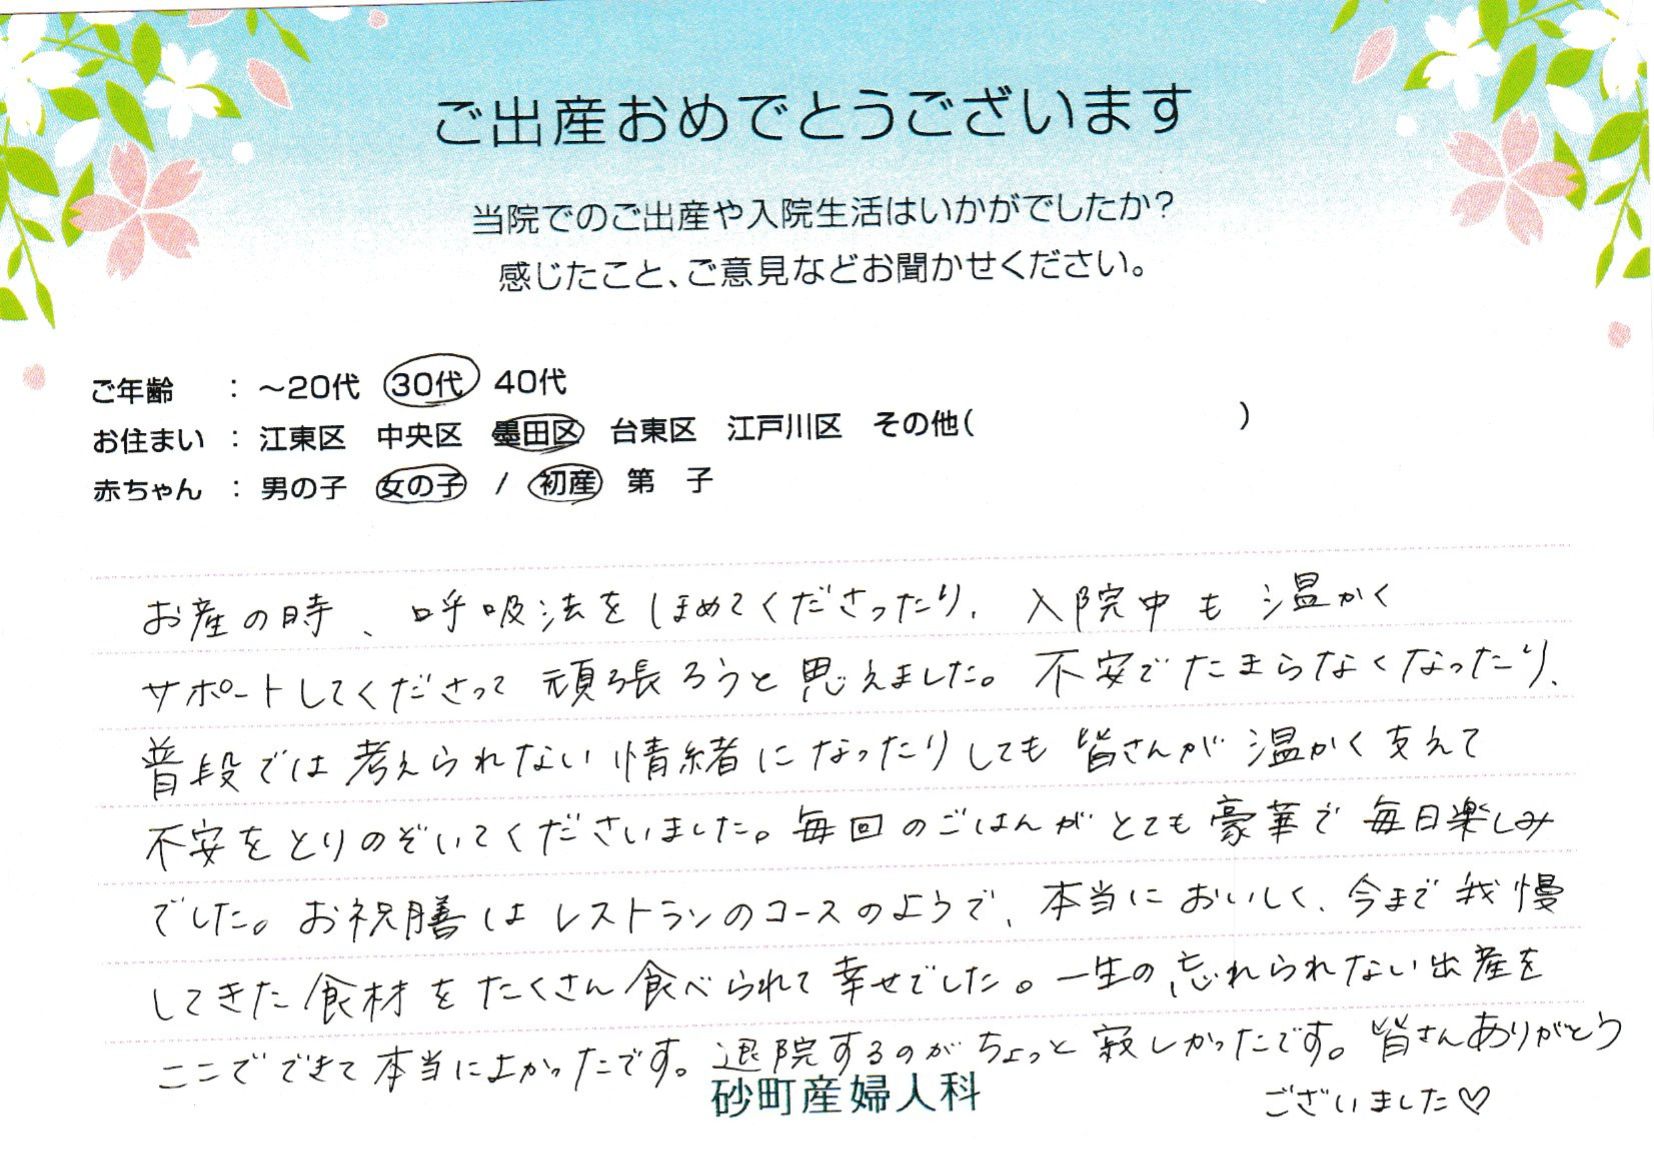 ご出産おめでとうございます
当院でのご出産や入院生活はいかがでしたか?
感じたこと、ご意見などお聞かせください。
ご年齢 : ～20代 30代 40代
お住まい : 江東区 中央区 墨田区 台東区 江戸川区 その他( )
赤ちゃん : 男の子 女の子 / 初産 第 子
お産の時、呼吸法をほめてくださったり、入院中も温かく
サポートしてくださって頑張ろうと思えました。不安でたまらなくなったり、
普段では考えられない情緒になったりしても皆さんが温かく支えて
不安をとりのぞいてくださいました。毎回のごはんがとても豪華で毎日楽しみ
でした。お祝膳はレストランのコースのようで、本当においしく、今まで我慢
してきた食材をたくさん食べられて幸せでした。一生の忘れられない出産を
ここでできて本当によかったです。退院するのがちょっと寂しかったです。皆さんありがとう
ございました♡
砂町産婦人科